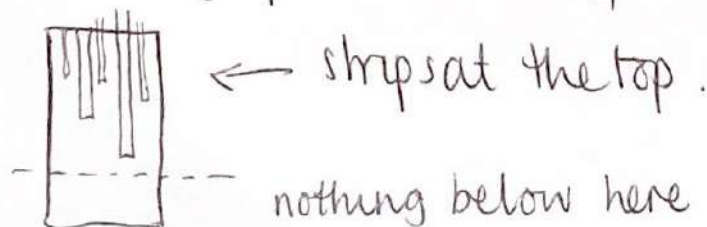 ← strips at the top.
nothing below here